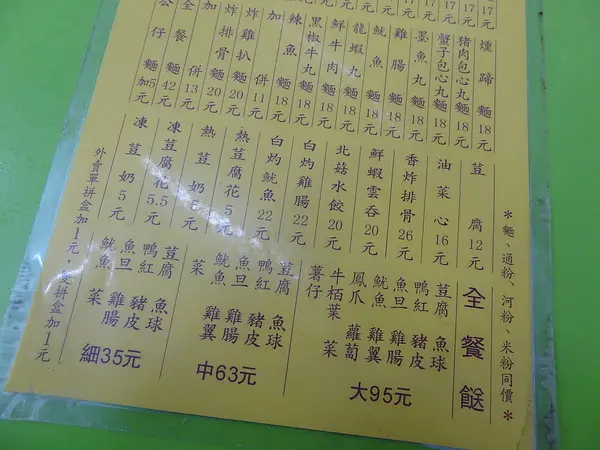 ＊麵、通粉、河粉、米粉同價＊
燻蹄麵18元
豬肉包心丸麵18元
蟹子包心丸麵18元
墨魚丸麵18元
雞腸麵18元
魷魚麵18元
龍蝦丸麵18元
鮮牛肉麵18元
黑椒牛丸麵18元
辣魚麵18元
加併11元
炸雞扒麵20元
炸排骨麵20元
加併13元
全餐麵42元
公仔麵加5元
荳腐12元
油菜心16元
香炸排骨26元
鮮蝦雲吞20元
北菇水餃20元
白灼雞腸22元
白灼魷魚22元
熱荳腐花5元
熱荳奶5元
凍荳腐花5.5元
凍荳奶5元
外賣單拼盒加1元，雙拼盒加1元
全餐餸
荳腐 魚球
鴨紅 豬皮
魚旦 雞腸
魷魚 雞翼
鳳爪 蘿蔔
牛栢葉 菜
薯仔
大95元
荳腐 魚球
鴨紅 豬皮
魚旦 雞腸
魷魚 雞翼
菜
中63元
荳腐 魚球
鴨紅 豬皮
魚旦 雞腸
魷魚 菜
細35元